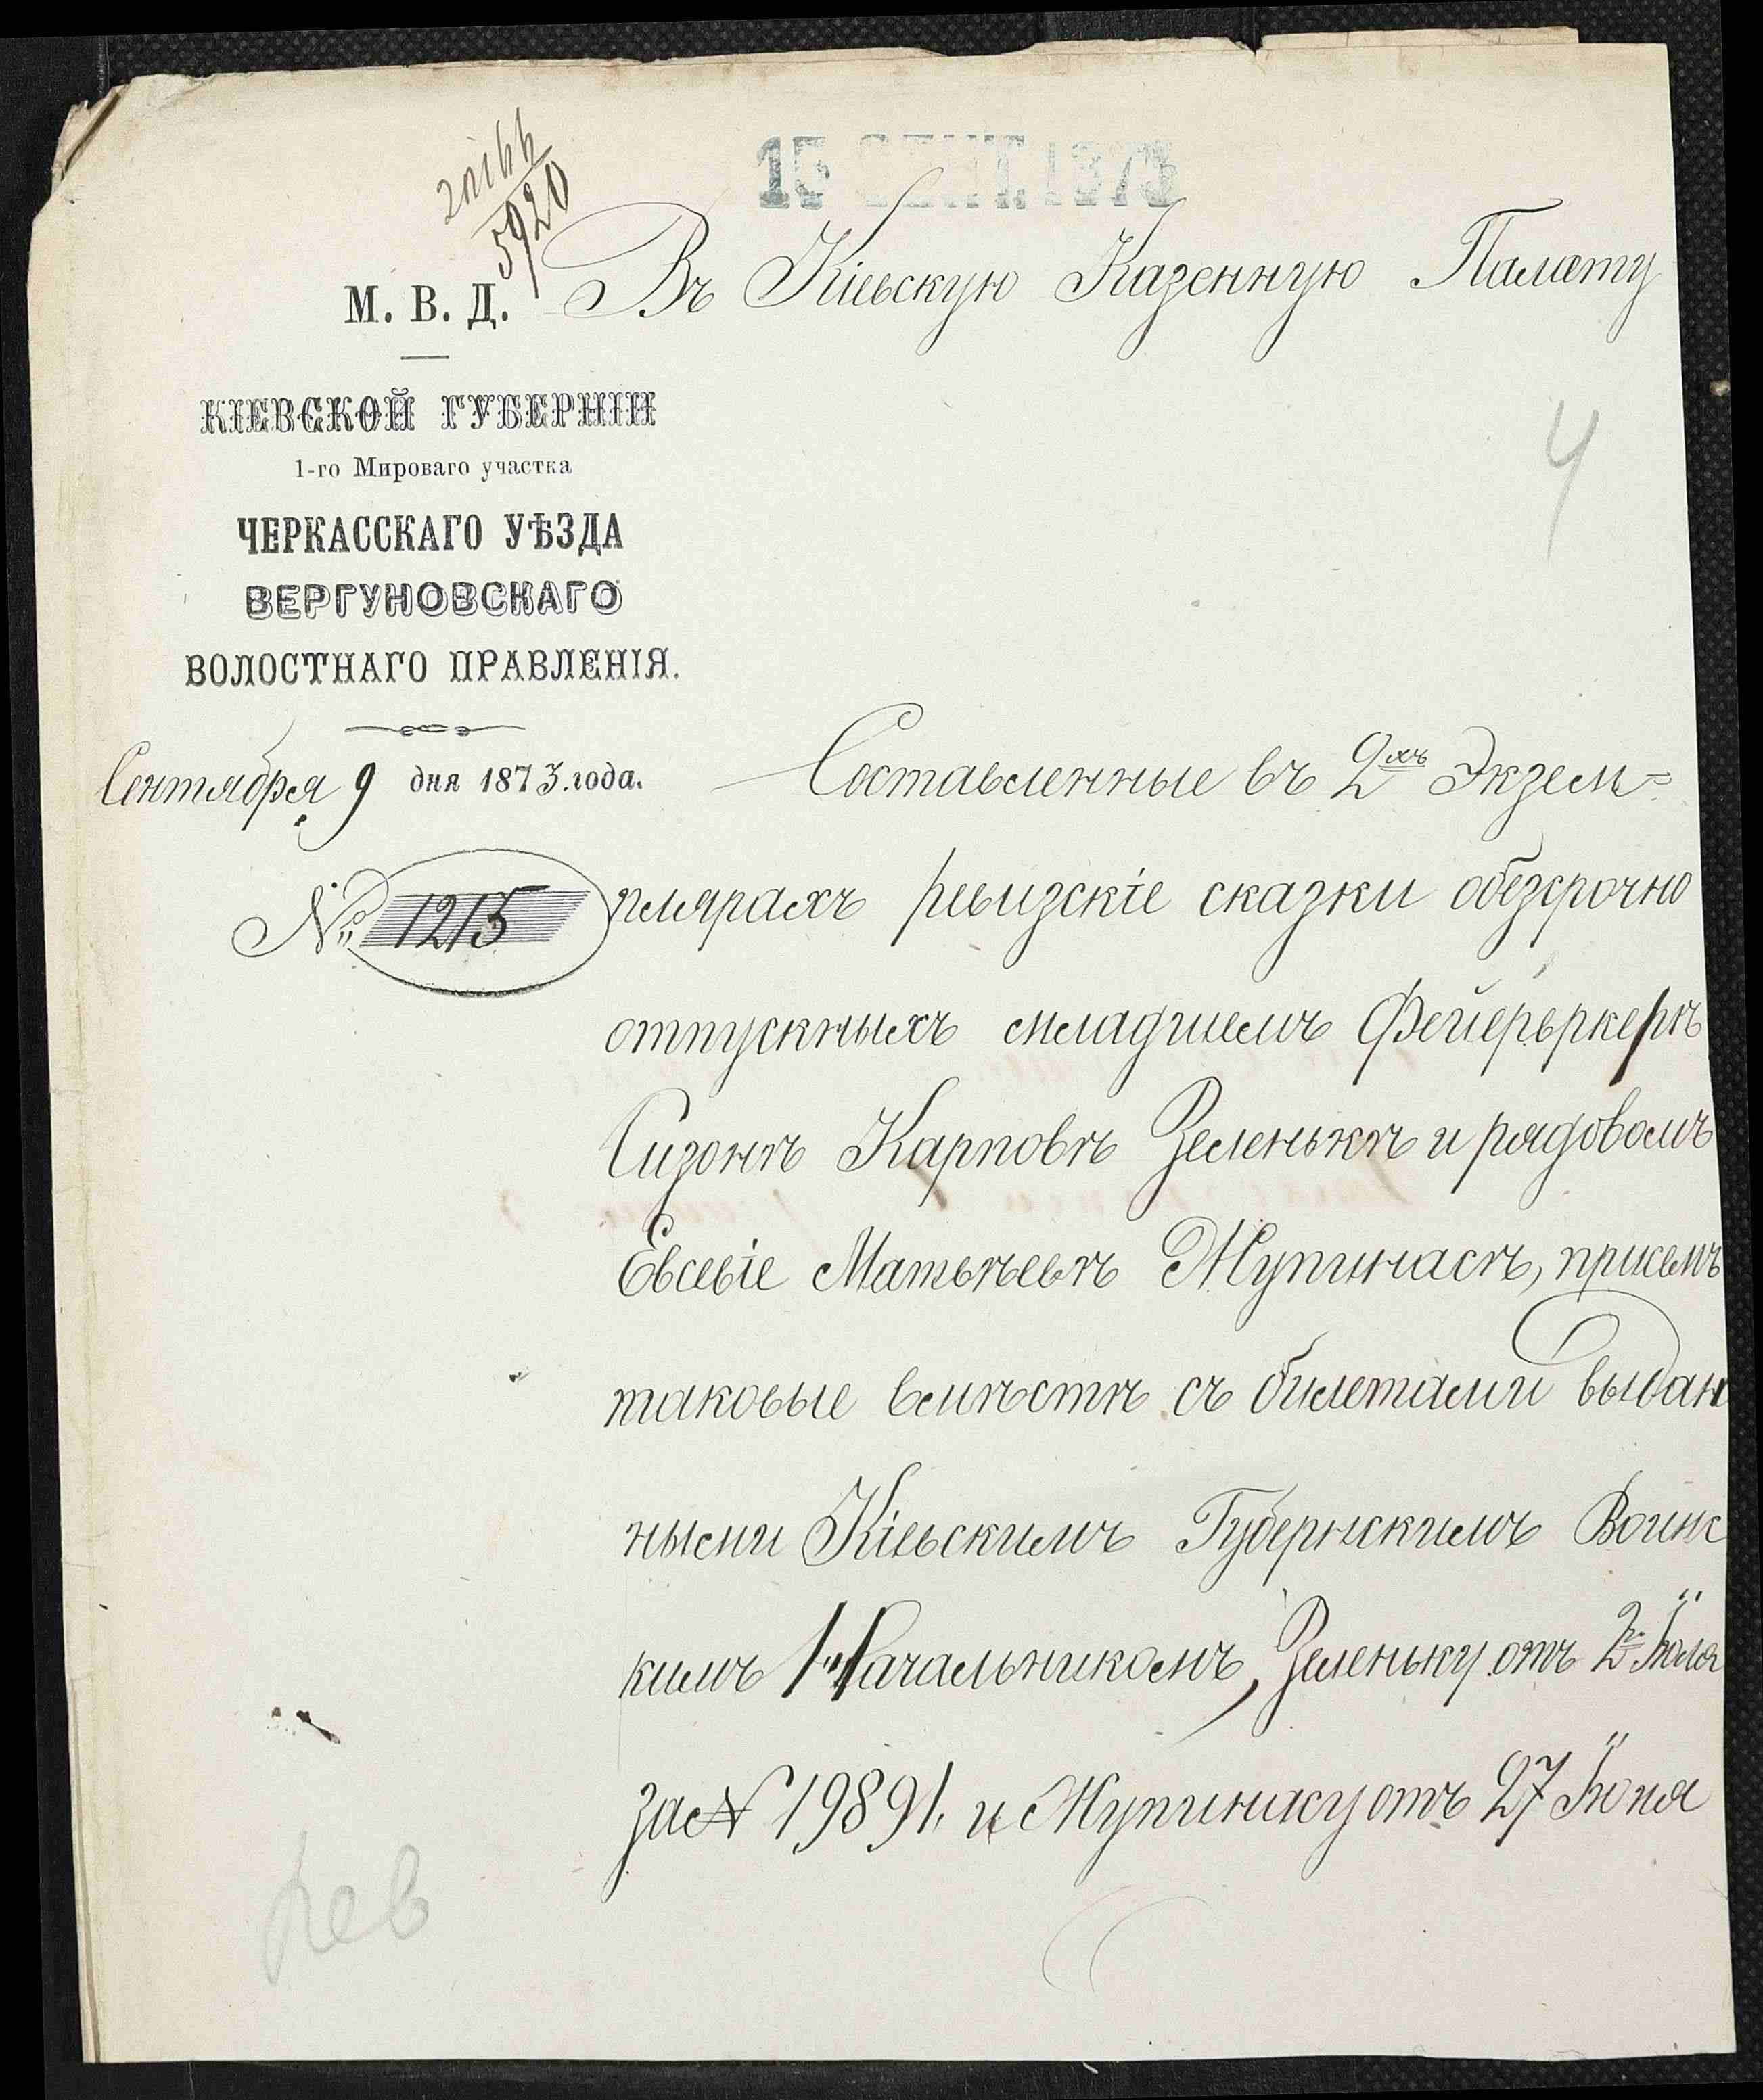 15 СЕНТ. 1873
5920
Въ Кіевскую Казенную Палату
М. В. Д.
КІЕВСКОЙ ГУБЕРНІИ
4
1-го Мироваго участка
ЧЕРКАССКАГО УѢЗДА
ВЕРГУНОВСКАГО
ВОЛОСТНАГО ПРАВЛЕНІЯ.
Сентября 9 дня 1873.года.
№ 1215
Составленные въ 2хъ Экзем=
плярахъ ревизскіе сказки обезсрочно
отпускныхъ младшемъ Фейерверкерѣ
Сизонѣ Карповѣ Зеленькѣ и рядовомъ
Евсевіе Матвѣевѣ Жупинасѣ, при семъ
таковые вмѣстѣ съ билетами выдан
ными Кіевскимъ Губернскимъ Воинс
кимъ Начальникомъ, Зеленьку отъ 2го Іюля
за № 19891. и Жупинасу отъ 27 Іюня
рев